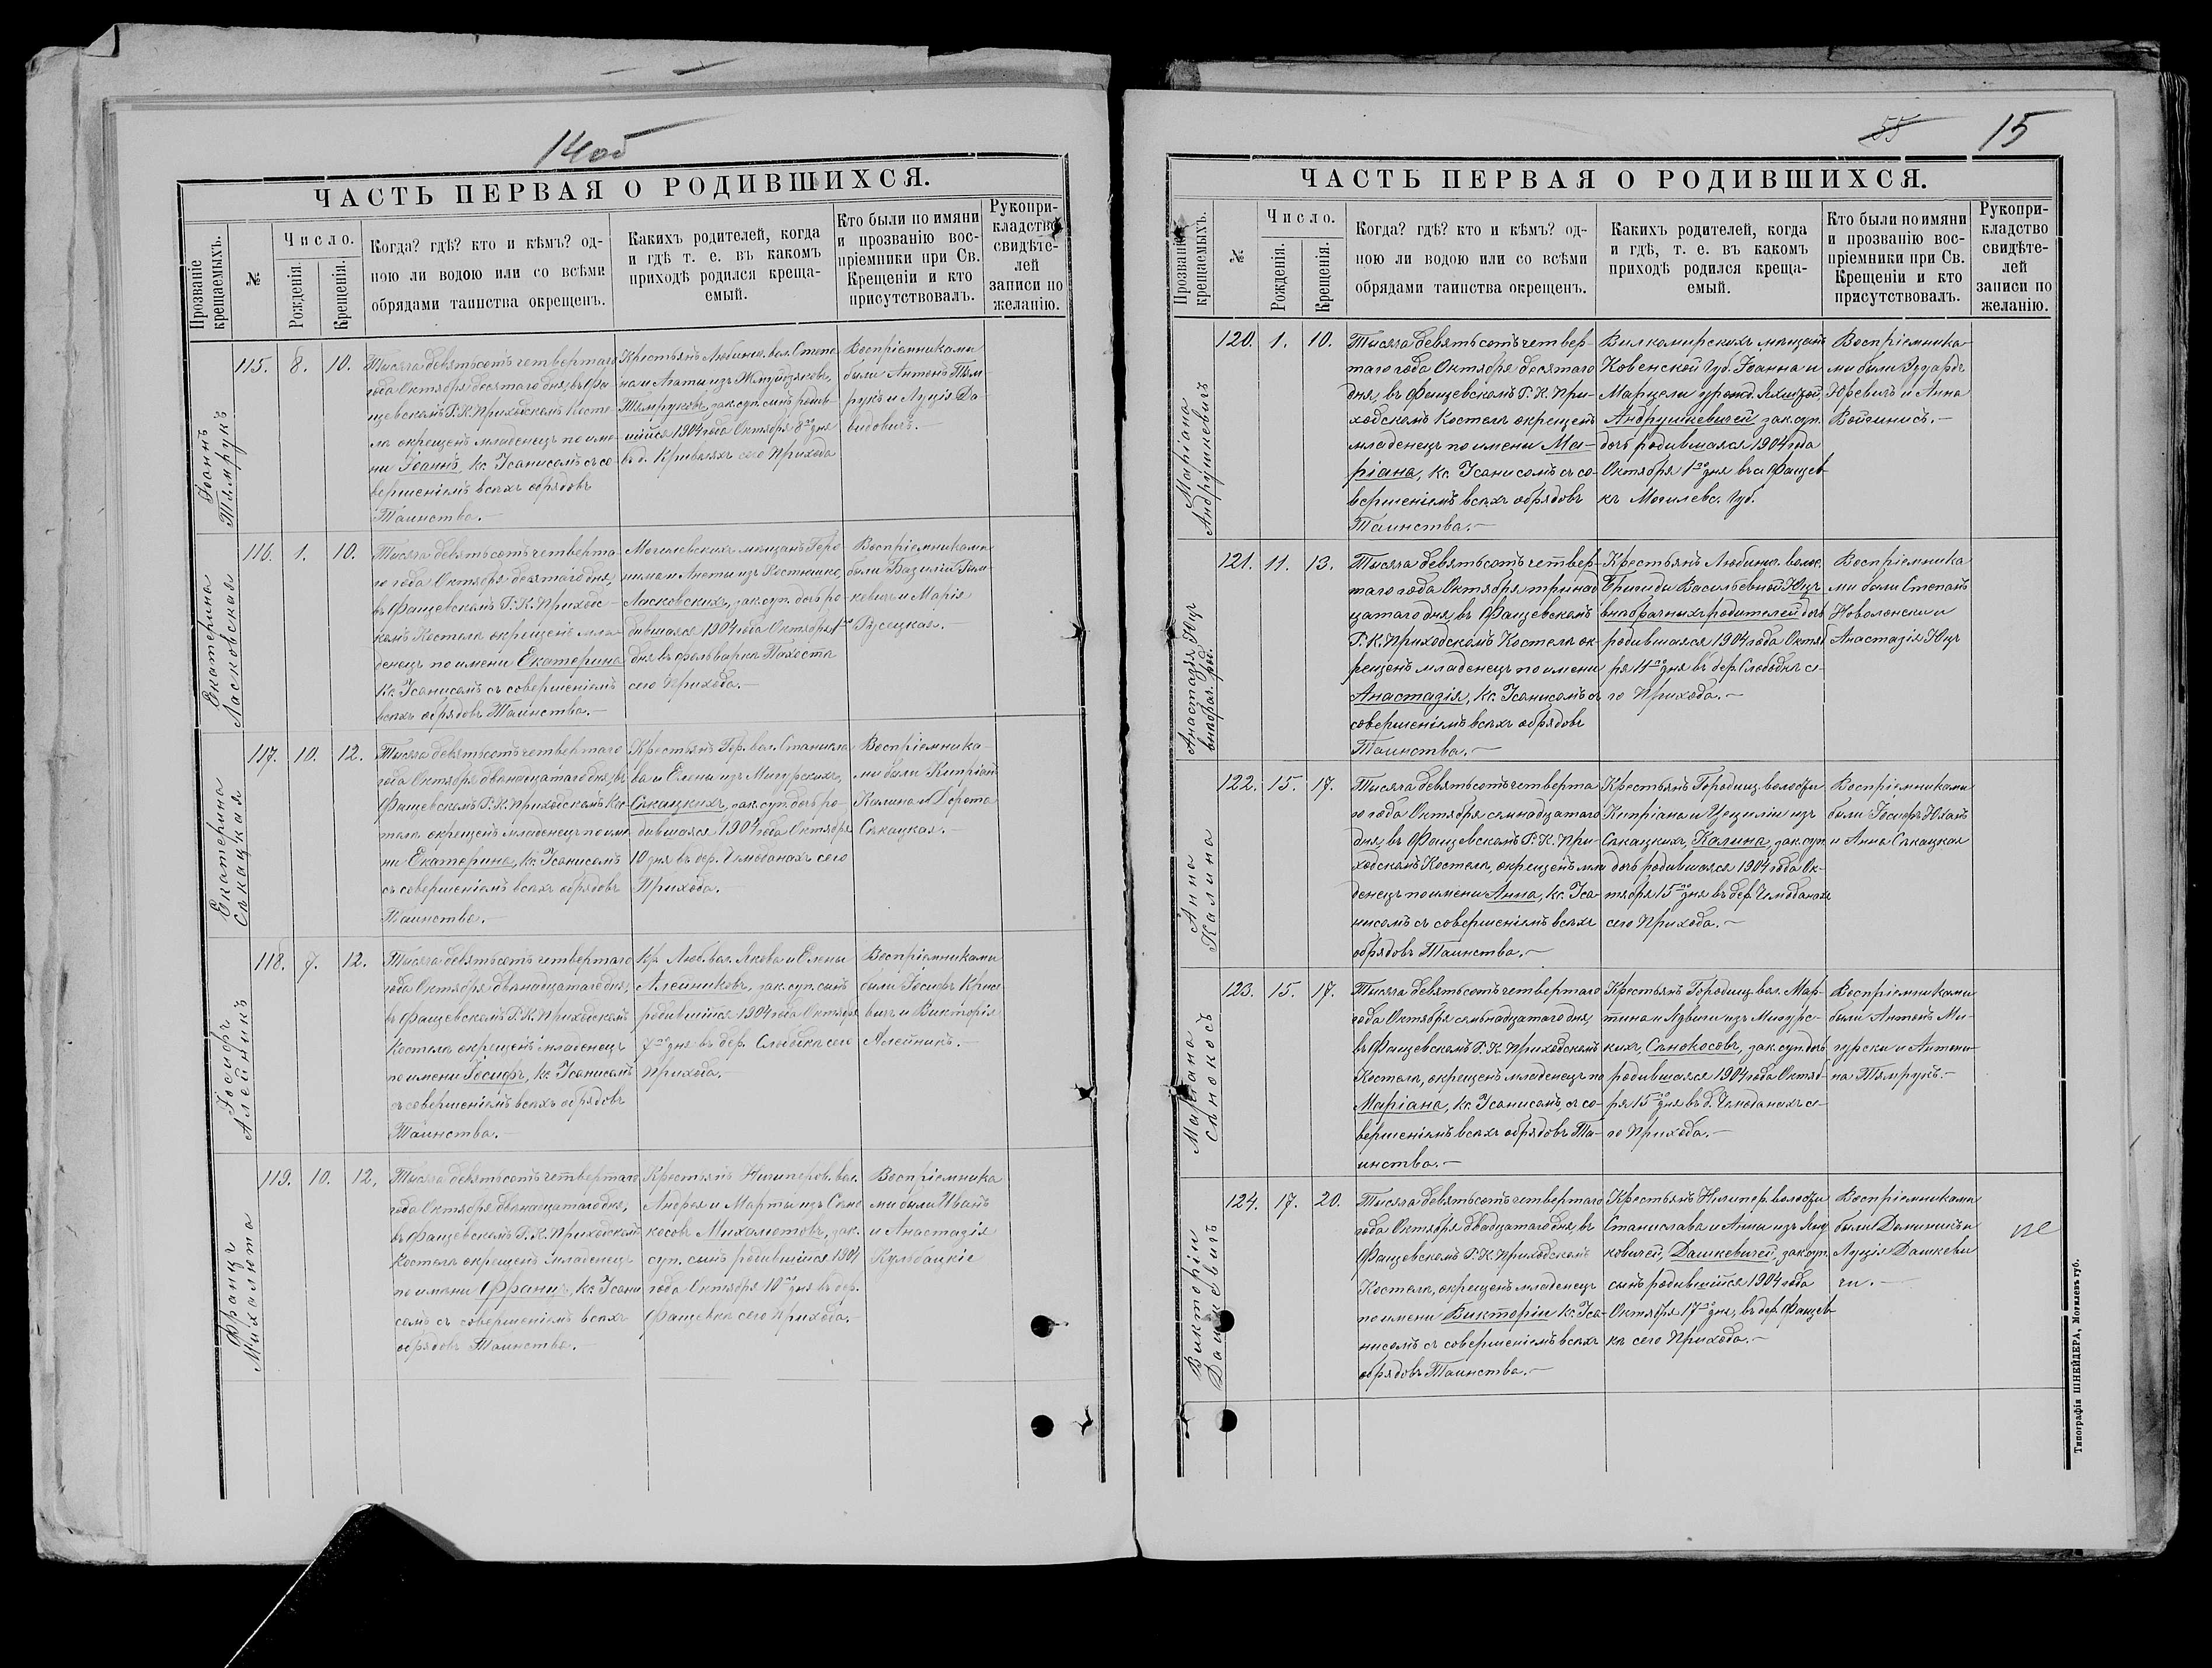 14об
ЧАСТЬ ПЕРВАЯ О РОДИВШИХСЯ.
Прозваніе крещаемыхъ.
№
Число.
Рожденія.
Крещенія.
Когда? гдѣ? кто и кѣмъ? од-
ною ли водою или со всѣми
обрядами таинства окрещенъ.
Какихъ родителей, когда
и гдѣ т. е. въ какомъ
приходѣ родился креща-
емый.
Кто были по имяни
и прозванію вос-
пріемники при Св.
Крещеніи и кто
присутствовалъ.
Рукопри-
кладство
свидѣте-
лей
записи по
желанію.
Іоаннъ
Тямрукъ
115. 8. 10.
Тысяча девятьсотъ четвертаго
года Октября десятаго дня, въ Фа-
щевскомъ Р. К. Приходскомъ Косте-
лѣ окрещенъ младенецъ по име-
ни Іоаннъ, Кс. Исанисомъ съ со-
вершеніемъ всѣхъ обрядовъ
Таинства.—
Крестьянъ Любинс. вол. Степа-
на и Агаты изъ
Тямруковъ, зак. суп. сынъ родив-
шійся 1904 года Октября 8го дня
въ д. сего Прихода
Воспріемниками
были Антонъ Тям
рукъ и Луція Да-
видовичъ.—
Екатерина
Ласковская
116. 1. 10.
Тысяча девятьсотъ четверта-
го года Октября десятаго дня,
въ Фащевскомъ Р. К. Приход-
скомъ Костелѣ окрещенъ мла-
денецъ по имени Екатерина
Кс. Исанисомъ съ совершеніемъ
всѣхъ обрядовъ Таинства.—
Могилевскихъ мѣщанъ Геро-
нима и Анеты изъ Костюшко,
Ласковскихъ, зак. суп. дочь ро-
дившаяся 1904 года Октября 1го
дня въ фольваркѣ
сего Прихода.—
Воспріемниками
были Базилій
и Марія
Русецкая.—
Екатерина
Сѣкацкая
117. 10. 12.
Тысяча девятьсотъ четвертаго
года Октября двѣнадцатаго дня, въ
Фащевскомъ Р. К. Приходскомъ Ко-
стелѣ окрещенъ младенецъ по име
ни Екатерина, Кс. Исанисомъ
съ совершеніемъ всѣхъ обрядовъ
Таинства.—
Крестьянъ Гор. вол. Станисла
ва и Елены изъ Мигурскихъ,
Сѣкацкихъ, зак. суп. дочь ро-
дившаяся 1904 года Октября
10 дня въ дер. Чемоданахъ сего
Прихода.—
Воспріемника-
ми были Кипріанъ
Калина и Дорота
Сѣкацкая.—
Іосифъ
Алейникъ
118. 7. 12.
Тысяча девятьсотъ четвертаго
года Октября двѣнадцатаго дня,
въ Фащевскомъ Р. К. Приходскомъ
Костелѣ окрещенъ младенецъ
по имени Іосифъ, Кс. Исанисомъ
съ совершеніемъ всѣхъ обрядовъ
Таинства.—
Кр. Люб. вол. Якова и Елены
Алейниковъ, зак. суп. сынъ
родившійся 1904 года Октября
7го дня въ дер. Слободкѣ сего
Прихода.—
Воспріемниками
были Іосифъ
и Викторія
Алейникъ.—
Францъ
Михалюта
119. 10. 12.
Тысяча девятьсотъ четвертаго
года Октября двѣнадцатаго дня,
въ Фащевскомъ Р. К. Приходскомъ
Костелѣ окрещенъ младенецъ
по имени Францъ, Кс. Исани
сомъ съ совершеніемъ всѣхъ
обрядовъ Таинства.—
Крестьянъ Ничипоров. вол.
Андрея и Марты изъ Сѣно
косовъ Михалютовъ, зак.
суп. сынъ родившійся 1904
года Октября 10го дня въ дер.
Фащевкѣ сего Прихода.—
Воспріемника
ми были Иванъ
и Анастазія
Кульбацкіе
55
15
ЧАСТЬ ПЕРВАЯ О РОДИВШИХСЯ.
Прозваніе крещаемыхъ.
№
Число.
Рожденія.
Крещенія.
Когда? гдѣ? кто и кѣмъ? од-
ною ли водою или со всѣми
обрядами таинства окрещенъ.
Какихъ родителей, когда
и гдѣ, т. е. въ какомъ
приходѣ родился креща-
емый.
Кто были по имяни
и прозванію вос-
пріемники при Св.
Крещеніи и кто
присутствовалъ.
Рукопри-
кладство
свидѣте-
лей
записи по
желанію.
Маріана
Андрушкевичъ
120. 1. 10.
Тысяча девятьсотъ четвер-
таго года Октября десятаго
дня, въ Фащевскомъ Р. К. При-
ходскомъ Костелѣ окрещенъ
младенецъ по имени Ма-
ріана, Кс. Исанисомъ съ со-
вершеніемъ всѣхъ обрядовъ
Таинства.—
Вилкомирскихъ мѣщанъ
Ковенской Губ. Іоанна и
Марцели урожд.
Андрушкевичей зак. суп.
дочь родившаяся 1904 года
Октября 1го дня въ с. Фащев
кѣ Могилевс. Губ.
Воспріемника-
ми были Эдуардъ
Юревичъ и Анна
Войшнисъ.—
Анастазія Юцъ
внѣбрач. род.
121. 11. 13.
Тысяча девятьсотъ четвер-
таго года Октября тринад
цатаго дня, въ Фащевскомъ
Р. К. Приходскомъ Костелѣ ок-
рещенъ младенецъ по имени
Анастазія, Кс. Исанисомъ съ
совершеніемъ всѣхъ обрядовъ
Таинства.—
Крестьянъ Любинс. волос.
Бригиды Васильевной Юцъ
внѣбрачныхъ родителей дочь
родившаяся 1904 года Октяб
ря 11го дня въ дер. Слободкѣ се-
го Прихода.—
Воспріемника
ми были Степанъ
Новолонски и
Анастазія Юцъ
Анна
Калина
122. 15. 17.
Тысяча девятьсотъ четверта
го года Октября семнадцатаго
дня, въ Фащевскомъ Р. К. При-
ходскомъ Костелѣ, окрещенъ мла
денецъ по имени Анна, Кс. Иса-
нисомъ съ совершеніемъ всѣхъ
обрядовъ Таинства.—
Крестьянъ Городищ. волости
Кипріана и Цециліи изъ
Сѣкацкихъ, Калина, зак. суп.
дочь родившаяся 1904 года Ок-
тября 15го дня въ дер. Чемоданахъ
сего Прихода.—
Воспріемниками
были Іосифъ Юханъ
и Анна Сѣкацкая
Маріана
Сѣнокосъ
123. 15. 17.
Тысяча девятьсотъ четвертаго
года Октября семьнадцатаго дня,
въ Фащевскомъ Р. К. Приходскомъ
Костелѣ, окрещенъ младенецъ по
Маріана, Кс. Исанисомъ, съ со-
вершеніемъ всѣхъ обрядовъ Та-
инства.—
Крестьянъ Городищ. вол. Мар-
тина и Ядвиги изъ Мигурс-
кихъ, Сѣнокосовъ, зак. суп. дочь
родившаяся 1904 года Октяб-
ря 15го дня въ д. Чемоданахъ се-
го Прихода.—
Воспріемниками
были Антонъ Ми-
гурски и Антони-
на Тямрукъ.—
Викторіи
Дашкевичъ
124. 17. 20.
Тысяча девятьсотъ четвертаго
года Октября двадцатаго дня, въ
Фащевскомъ Р. К. Приходскомъ
Костелѣ, окрещенъ младенецъ
по имени Викторіи Кс. Иса-
нисомъ съ совершеніемъ всѣхъ
обрядовъ Таинства.—
Крестьянъ Ничипор. волости
Станислава и Анны изъ
Дашкевичей, зак. суп.
сынъ родившійся 1904 года
Октября 17го дня, въ дер. Фащев-
кѣ сего Прихода.—
Воспріемниками
были Доминикъ и
Луція Дашкеви
чи.—
Типографія ШНЕЙДЕРА, Могилевъ губ.